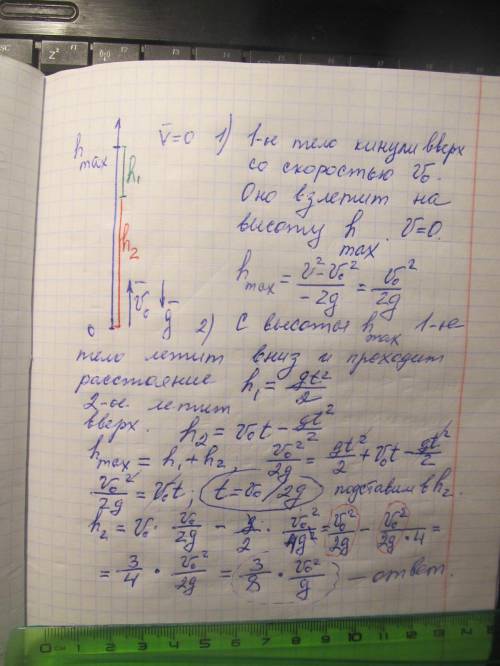 h max
V̄=0 1) 1-е тело кинули вверх
со скоростью v₀.
Оно взлетит на
высоту h max. V=0.
h₁
h₂
v̄₀
ḡ
0
h max = (v²-v₀²)/(-2g) = v₀²/2g
2) С высоты h max 1-ое
тело летит вниз и проходит
расстояние h₁ = gt²/2
2-ое летит
вверх. h₂ = v₀t - gt²/2
h max = h₁ + h₂, v₀²/2g = gt²/2 + v₀t - gt²/2
v₀²/2g = v₀t; t = v₀/2g подставим в h₂.
h₂ = v₀ · v₀/2g - g/2 · v₀²/4g² = v₀²/2g - v₀²/2g·4 =
= 3/4 · v₀²/2g = 3/8 · v₀²/g — ответ.
0 см 1 2 3 4 5 6 7 8 9 10 11 12 13 14 15